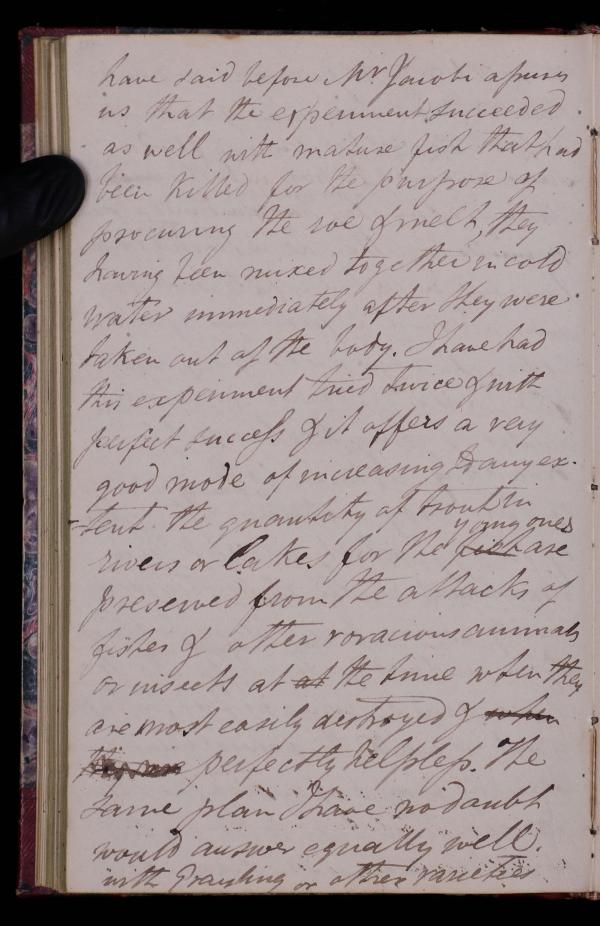 have said before Mr Jacobi assures
us that the experiment succeeded
as well with mature fish that had
been killed for the purpose of
procuring the roe & melt, they
having been mixed together in cold
water immediately after they were
taken out of the body. I have had
this experiment tried twice & with
perfect success & it offers a very
good mode of increasing to any ex-
-tent the quantity of trout in
young ones
rivers or lakes for the fish are
preserved from the attacks of
fishes & other voracious animals
or insects at at the time when they
are most easily destroyed & when
perfectly helpless. The
same plan I have no doubt
would answer equally well.
with Grayling or other varieties